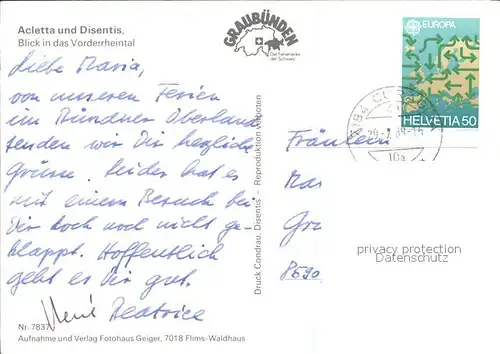 Acletta und Disentis,
Blick in das Vorderrheintal
GRAUBÜNDEN
Die Ferienecke
der Schweiz
EUROPA
HELVETIA 50
10a
Liebe Maria,
von unseren Ferien
im Bündner Oberland
senden wir Dir herzliche
Grüsse. Leider hat es
mit einem Besuch bei
Dir doch noch nicht ge-
klappt. Hoffentlich
geht es Dir gut.
René Beatrice
Fräulein
Mar
Gru
8590
privacy protection
Datenschutz
Druck Condrau, Disentis - Reproduktion verboten
Nr. 7837
Aufnahme und Verlag Fotohaus Geiger, 7018 Flims-Waldhaus